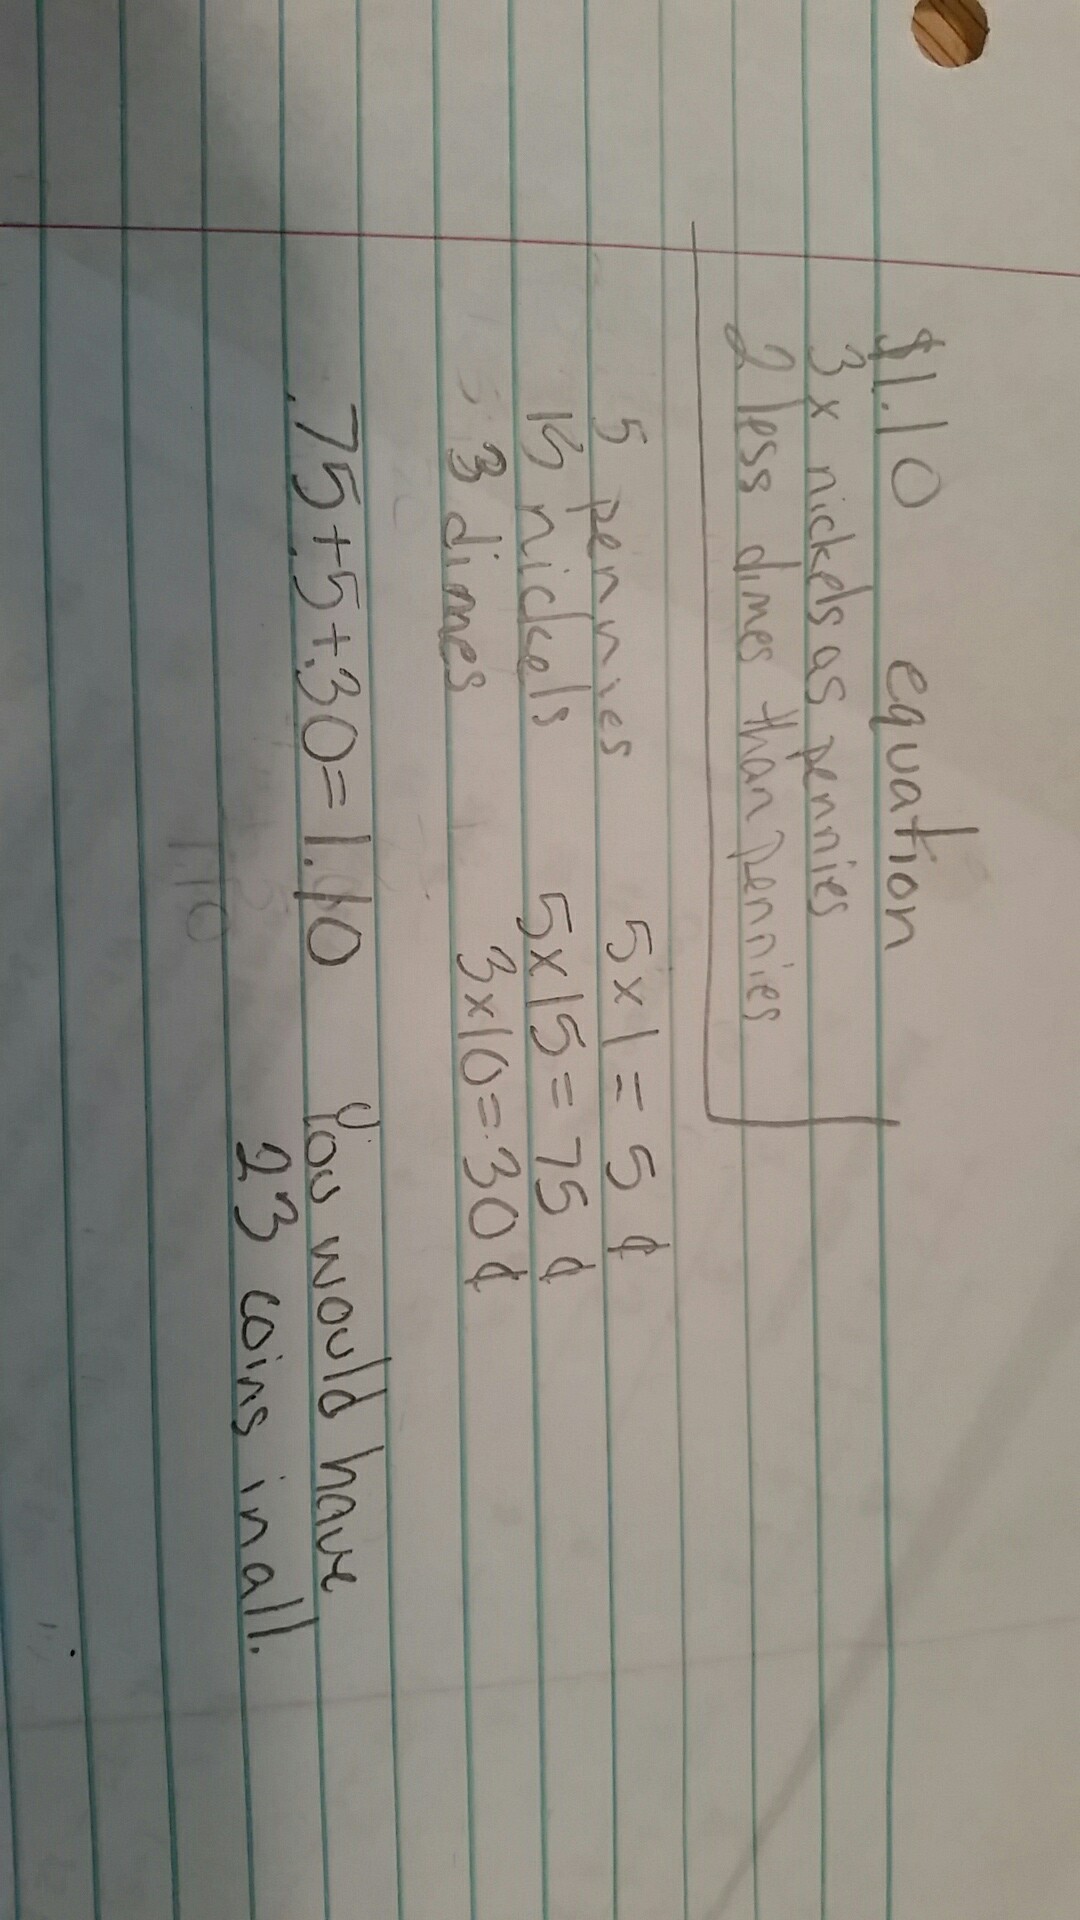 $1.10 equation
3x nickels as pennies
2 less dimes than pennies
5 pennies 5x1=5¢
15 nickels 5x15=75¢
3 dimes 3x10=30¢
.75+.5+.30=1.10 You would have
23 coins in all.
1.10